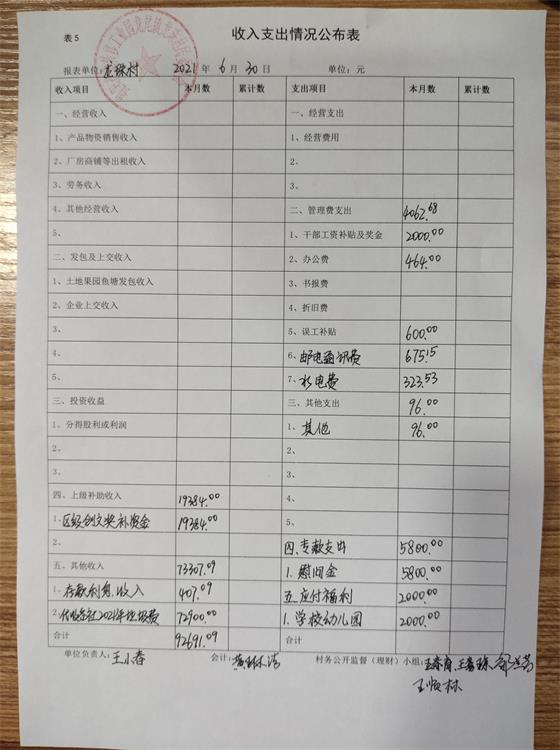 表5
收入支出情况公布表
报表单位: 村 2021年6月30日 单位:元
收入项目 本月数 累计数 支出项目 本月数 累计数
一、经营收入 一、经营支出
1、产品物资销售收入 1、经营费用
2、厂房商铺等出租收入 2、
3、劳务收入 3、
4、其他经营收入 二、管理费支出 4062.68
5、 1、干部工资补贴及奖金 2000.00
二、发包及上交收入 2、办公费 464.00
1、土地果园鱼塘发包收入 3、书报费
2、企业上交收入 4、折旧费
3、 5、误工补贴 600.00
4、 6、邮电通讯费 675.15
5、 7、水电费 323.53
三、投资收益 三、其他支出 96.00
1、分得股利或利润 1、其他 96.00
2、 2、
3、 3、
四、上级补助收入 19384.00 4、
1、区级创文奖补资金 19384.00 5、
2、 四、专款支出 5800.00
五、其他收入 73307.09 1.慰问金 5800.00
1、存款利息收入 407.09 五、应付福利 2000.00
2、 2021年垃圾费 72900.00 1.学校幼儿园 2000.00
合计 92691.09 合计
单位负责人:王小春 会计: 村务公开监督(理财)小组: